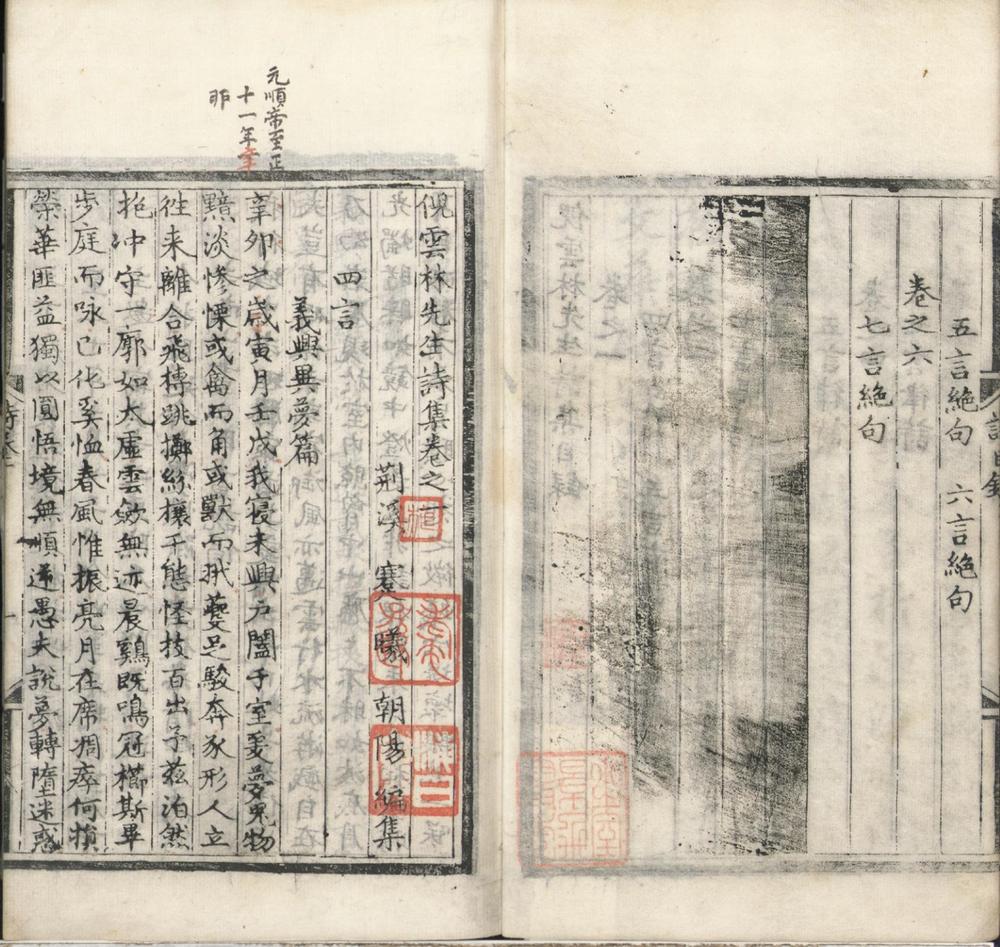 五言絶句　六言絶句
卷之六
七言絶句
詩目錄
元順帝至正
十一年辛
夘
倪雲林先生詩集卷之一
荆溪　蹇曦朝陽編集
四言
義興異夢篇
辛夘之歲寅月壬戌我寢未興户闔于室爰夢鬼物
黯淡慘慄或禽而角或獸而㧖夔足駿奔豕形人立
徃来離合飛摶跳擲絲攘千態怪技百出予茲泊然
抱冲守一廓如太虛雲歛無迹晨鷄既鳴冠櫛斯畢
步庭而咏已化奚恤春風惟振亮月在席痟瘁何損
榮華匪益獨以圓悟境無順逆愚夫說夢轉墮迷惑